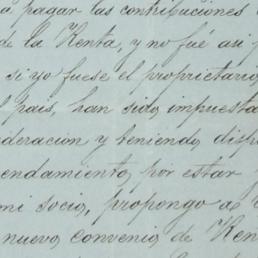 á pagar las contribuciones
de la Renta, y no fué así
si yo fuese el proprietario
país, han sido impuesta
deración y teniendo disp
endamiento, por estar
mi socio, propongo a
nuevo convenio de Ren